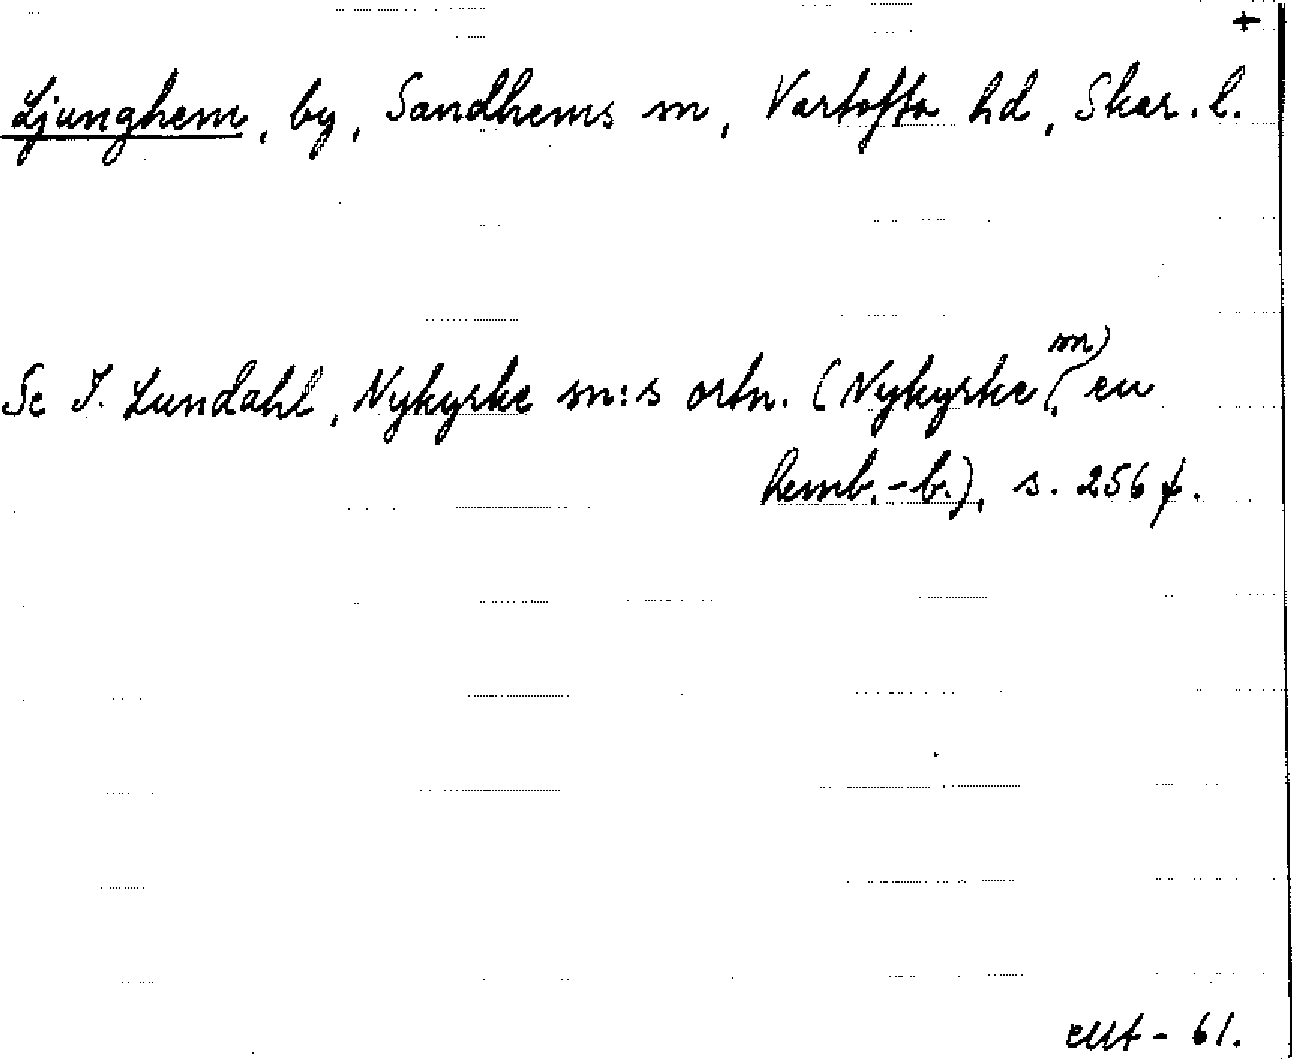 +
Ljunghem, by, Sandhems sn, Vartofta hd, Skar. l.
Se I. Lundahl, Nykyrke sn:s ortn. (Nykyrke sn), en
hemb.-b.), s. 256 f.
- 61.